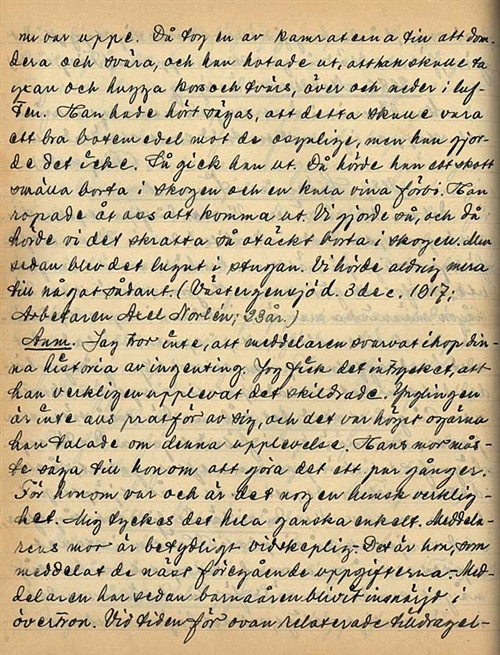 nu var uppe. Då tog en av kamraterna till att dom-
dera och svära, och han hotade ut, att han skulle ta
yxan och hugga kors och tvärs, över och neder i luf-
ten. Han hade hört sägas, att detta skulle vara
ett bra botemedel mot de osynlige, men han gjor-
de det icke. Så gick han ut. Då hörde han ett skott
smälla borta i skogen och en kula vina förbi. Han
ropade åt oss att komma ut. Vi gjorde så, och då
hörde vi det skratta så otäckt borta i skogen. Men
sedan blev det lugnt i stugan. Vi hörde aldrig mera
till något sådant. (Västergensjö d. 3 dec. 1917;
Arbetaren Axel Norlén; 23 år.)
Anm. Jag tror inte, att meddelaren svarvat ihop den-
na historia av ingenting. Jag fick det intrycket, att
han verkligen upplevat det skildrade. Ynglingen
är inte alls pratför av sig, och det var högst ogärna
han talade om denna upplevelse. Hans mor mås-
te säga till honom att göra det ett par gånger.
För honom var och är det nog en hemsk verklig-
het. Mig tyckes det hela ganska enkelt. Meddela-
rens mor är betydligt vidskeplig. Det är hon, som
meddelat de näst föregående uppgifterna. Med-
delaren har sedan barnaåren blivit insnärjd i
övertron. Vid tiden för ovan relaterade tilldragel-